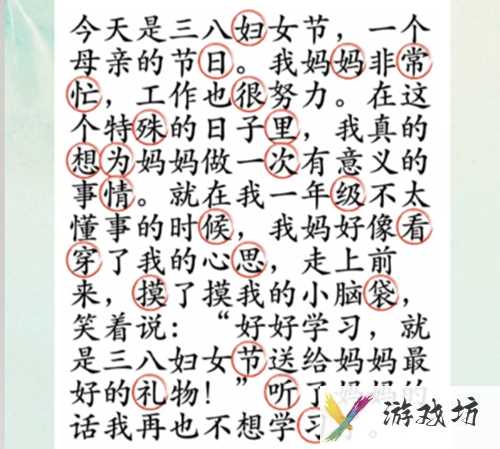 今天是三八妇女节，一个
母亲的节日。我妈妈非常
忙，工作也很努力。在这
个特殊的日子里，我真的
想为妈妈做一次有意义的
事情。就在我一年级不太
懂事的时候，我妈好像看
穿了我的心思，走上前
来，摸了摸我的小脑袋，
笑着说：“好好学习，就
是三八妇女节送给妈妈最
好的礼物！”听了妈妈的
话我再也不想学习了。
游戏坊